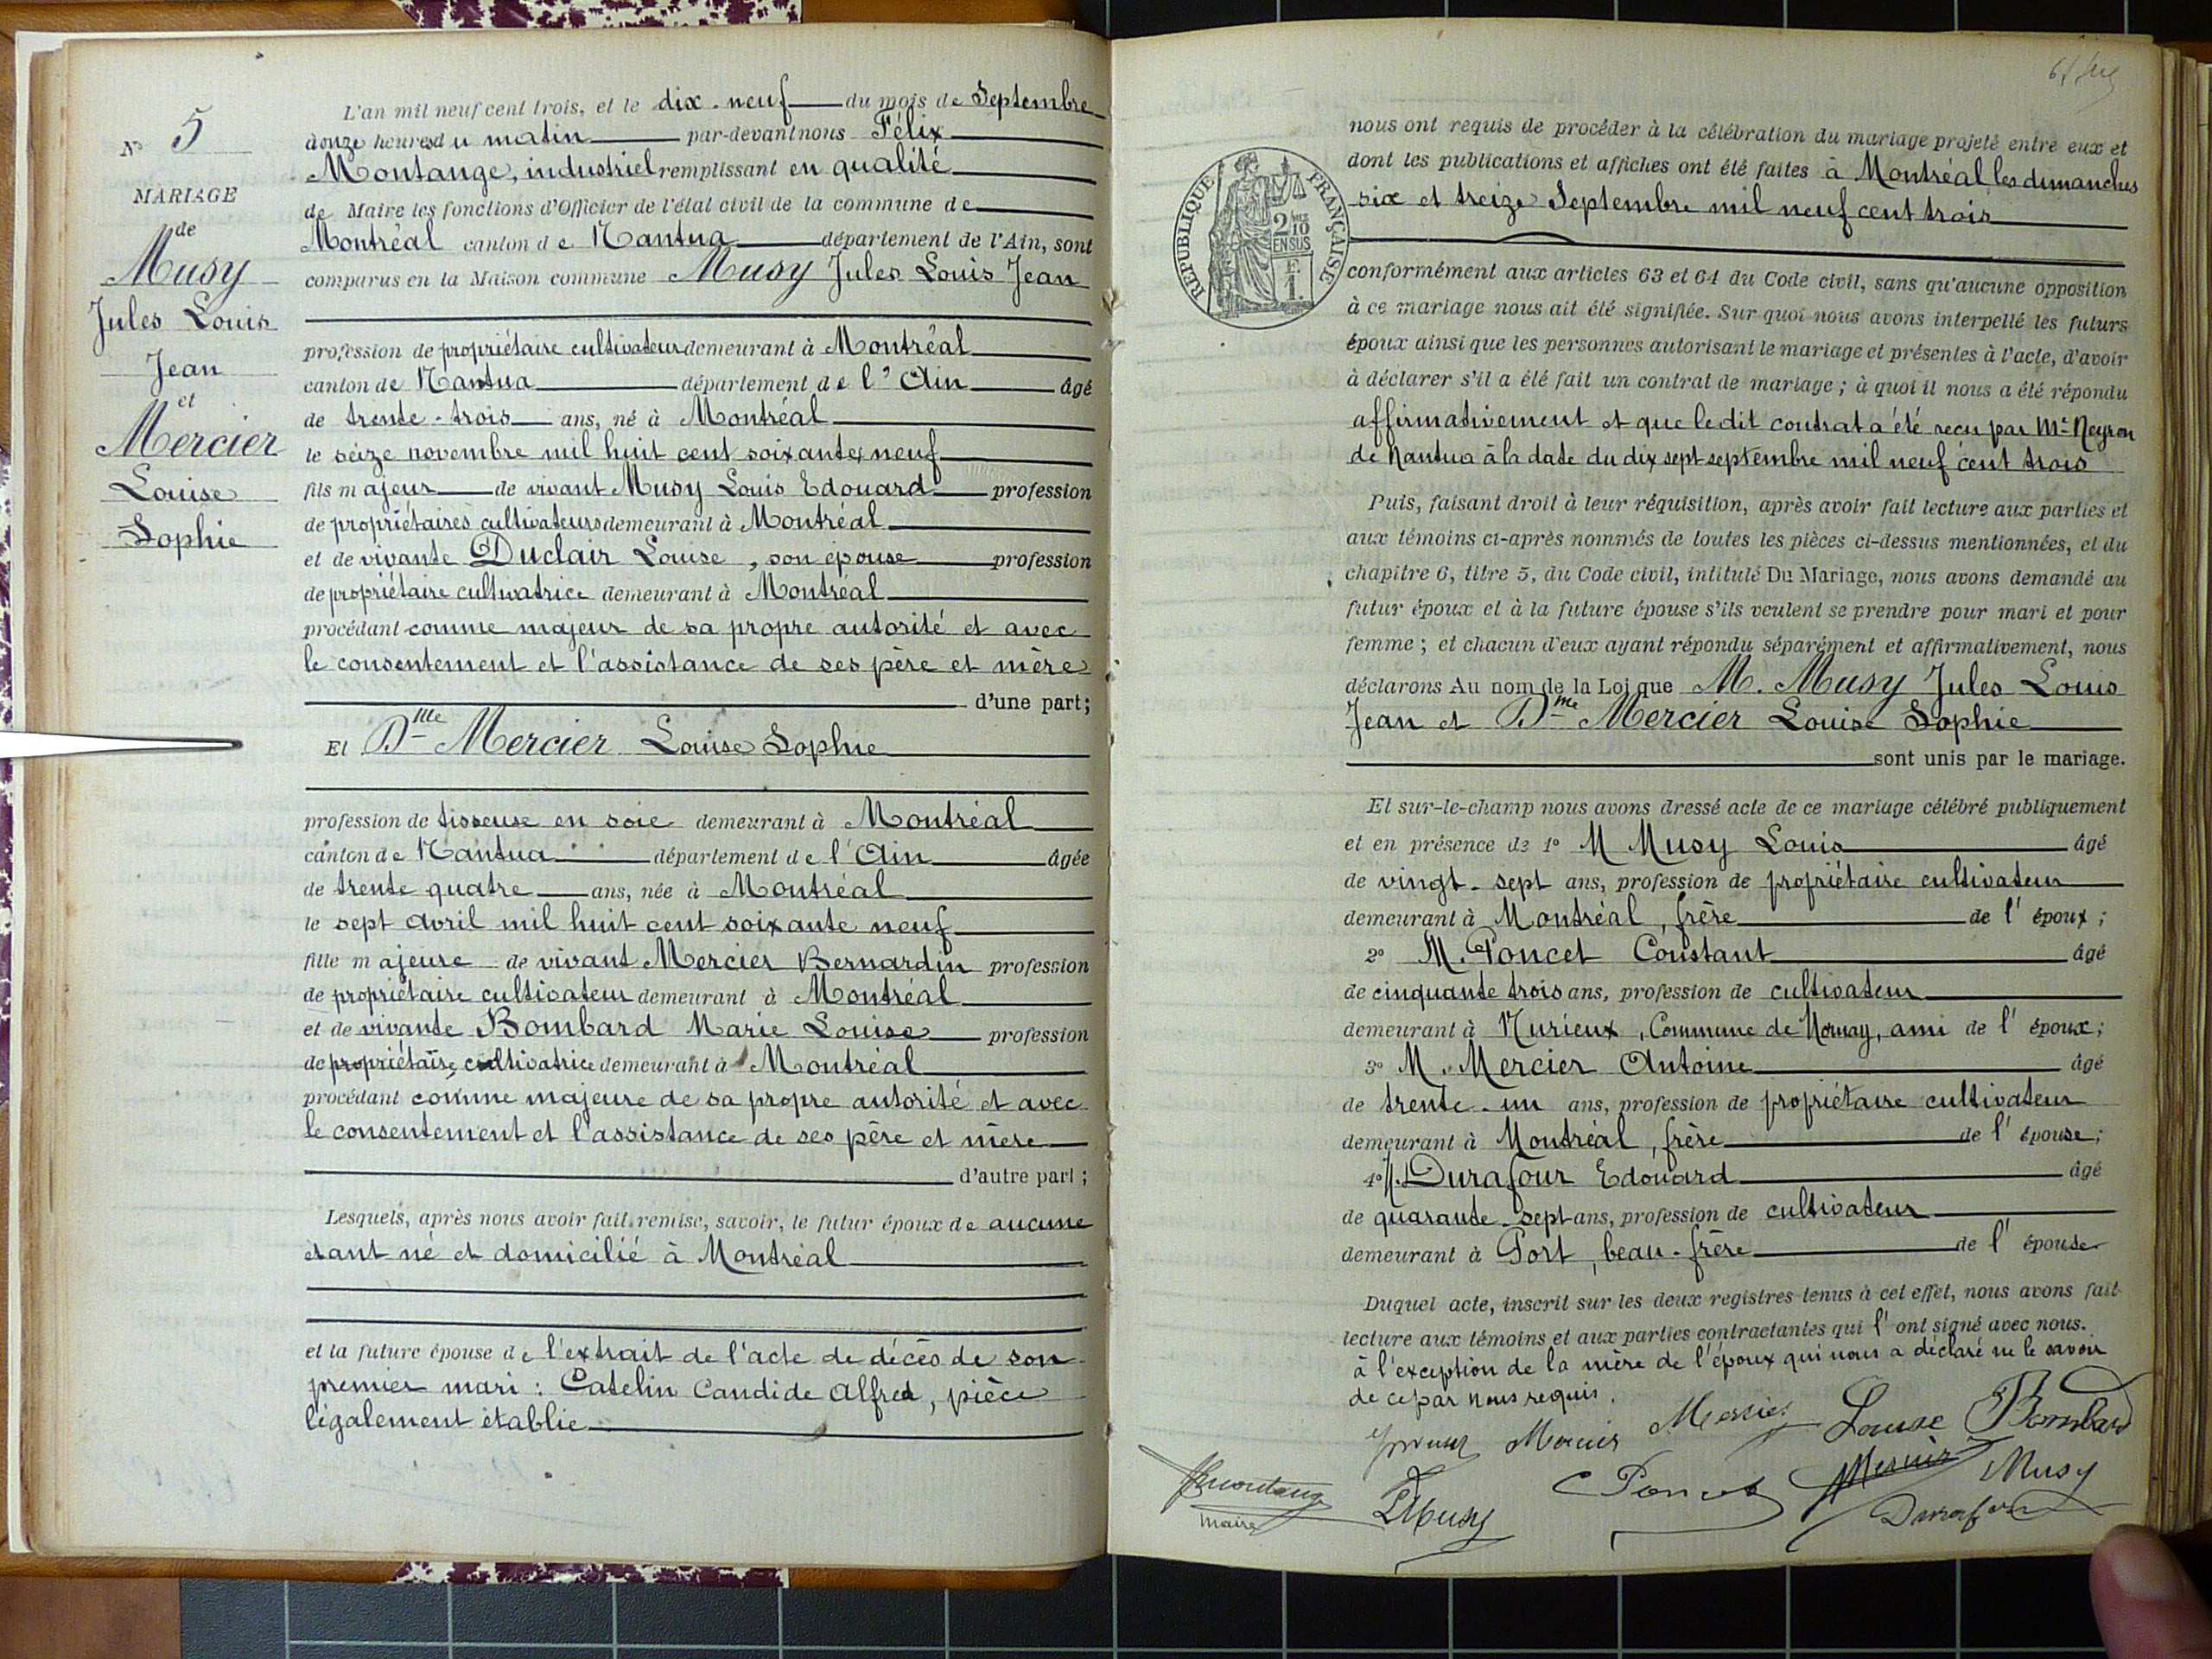 N° 5
MARIAGE
de
Musy
Jules Louis
Jean
et
Mercier
Louise
Sophie
L'an mil neuf cent trois, et le dix-neuf du mois de Septembre
à onze heures du matin par-devant nous Félix
Montange, industriel remplissant en qualité
de Maire les fonctions d'Officier de l'état civil de la commune de
Montréal canton de Nantua département de l'Ain, sont
comparus en la Maison commune Musy Jules Louis Jean
profession de propriétaire cultivateur demeurant à Montréal
canton de Nantua département de l'Ain âgé
de trente-trois ans, né à Montréal
le seize novembre mil huit cent soixante neuf
fils majeur de vivant Musy Louis Edouard profession
de propriétaires cultivateurs demeurant à Montréal
et de vivante Duclair Louise, son épouse profession
de propriétaire cultivatrice demeurant à Montréal
procédant comme majeur de sa propre autorité et avec
le consentement et l'assistance de ses père et mère
d'une part;
Et Dlle Mercier Louise Sophie
profession de tisseuse en soie demeurant à Montréal
canton de Nantua département de l'Ain âgée
de trente quatre ans, née à Montréal
le sept avril mil huit cent soixante neuf
fille majeure de vivant Mercier Bernardin profession
de propriétaire cultivateur demeurant à Montréal
et de vivante Bombard Marie Louise profession
de propriétaire cultivatrice demeurant à Montréal
procédant comme majeure de sa propre autorité et avec
le consentement et l'assistance de ses père et mère
d'autre part;
Lesquels, après nous avoir fait remise, savoir, le futur époux de aucune
étant né et domicilié à Montréal
et la future épouse de l'extrait de l'acte de décès de son
premier mari : Catelin Candide Alfred, pièce
légalement établie
RÉPUBLIQUE FRANÇAISE
2/10 EN SUS
F. 1.
nous ont requis de procéder à la célébration du mariage projeté entre eux et
dont les publications et affiches ont été faites à Montréal les dimanches
six et treize Septembre mil neuf cent trois
conformément aux articles 63 et 64 du Code civil, sans qu'aucune opposition
à ce mariage nous ait été signifiée. Sur quoi nous avons interpellé les futurs
époux ainsi que les personnes autorisant le mariage et présentes à l'acte, d'avoir
à déclarer s'il a été fait un contrat de mariage; à quoi il nous a été répondu
affirmativement et que le dit contrat a été reçu par Me Neyron
de Nantua à la date du dix sept septembre mil neuf cent trois
Puis, faisant droit à leur réquisition, après avoir fait lecture aux parties et
aux témoins ci-après nommés de toutes les pièces ci-dessus mentionnées, et du
chapitre 6, titre 5, du Code civil, intitulé Du Mariage, nous avons demandé au
futur époux et à la future épouse s'ils veulent se prendre pour mari et pour
femme; et chacun d'eux ayant répondu séparément et affirmativement, nous
déclarons Au nom de la Loi que M. Musy Jules Louis
Jean et Dme Mercier Louise Sophie
sont unis par le mariage.
Et sur-le-champ nous avons dressé acte de ce mariage célébré publiquement
et en présence de 1° M Musy Louis âgé
de vingt-sept ans, profession de propriétaire cultivateur
demeurant à Montréal, frère de l'époux;
2° M. Poncet Constant âgé
de cinquante trois ans, profession de cultivateur
demeurant à Nurieux, Commune de Mornay, ami de l'époux;
3° M. Mercier Antoine âgé
de trente-un ans, profession de propriétaire cultivateur
demeurant à Montréal, frère de l'épouse;
4° M. Durafour Edouard âgé
de quarante-sept ans, profession de cultivateur
demeurant à Port, beau-frère de l'épouse
Duquel acte, inscrit sur les deux registres tenus à cet effet, nous avons fait
lecture aux témoins et aux parties contractantes qui l'ont signé avec nous.
à l'exception de la mère de l'époux qui nous a déclaré ne le savoir
de ce par nous requis.
Mercier Mercier Louise Bombard
Montange LMusy C Poncet Mercier Musy
maire Durafour